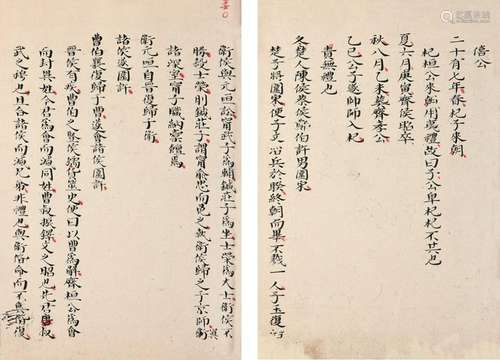 僖公
二十有七年春杞子來朝
杞桓公來朝用夷禮故曰子公卑杞杞不共也
夏六月庚寅齊侯昭卒
秋八月乙未葬齊孝公
乙巳公子遂帥師入杞
責無禮也
冬楚人陳侯蔡侯鄭伯許男圍宋
楚子將圍宋使子文治兵於睽終朝而畢不戮一人子玉復治
衛侯與元咺訟甯武子為輔鍼莊子為坐士榮為大士衛侯不
勝殺士榮刖鍼莊子謂甯俞忠而免之執衛侯歸之于京師
諸深室甯子職納橐饘焉
衛元咺自晉復歸于衛
諸侯遂圍許
曹伯襄復歸于曹遂會諸侯圍許
晉侯有疾曹伯之豎侯獳貨筮史使曰以曹為解齊桓公為會
而封異姓今君為會而滅同姓曹叔振鐸文之昭也先君唐叔
武之穆也且合諸侯而滅兄弟非禮也與衛偕命而不與復